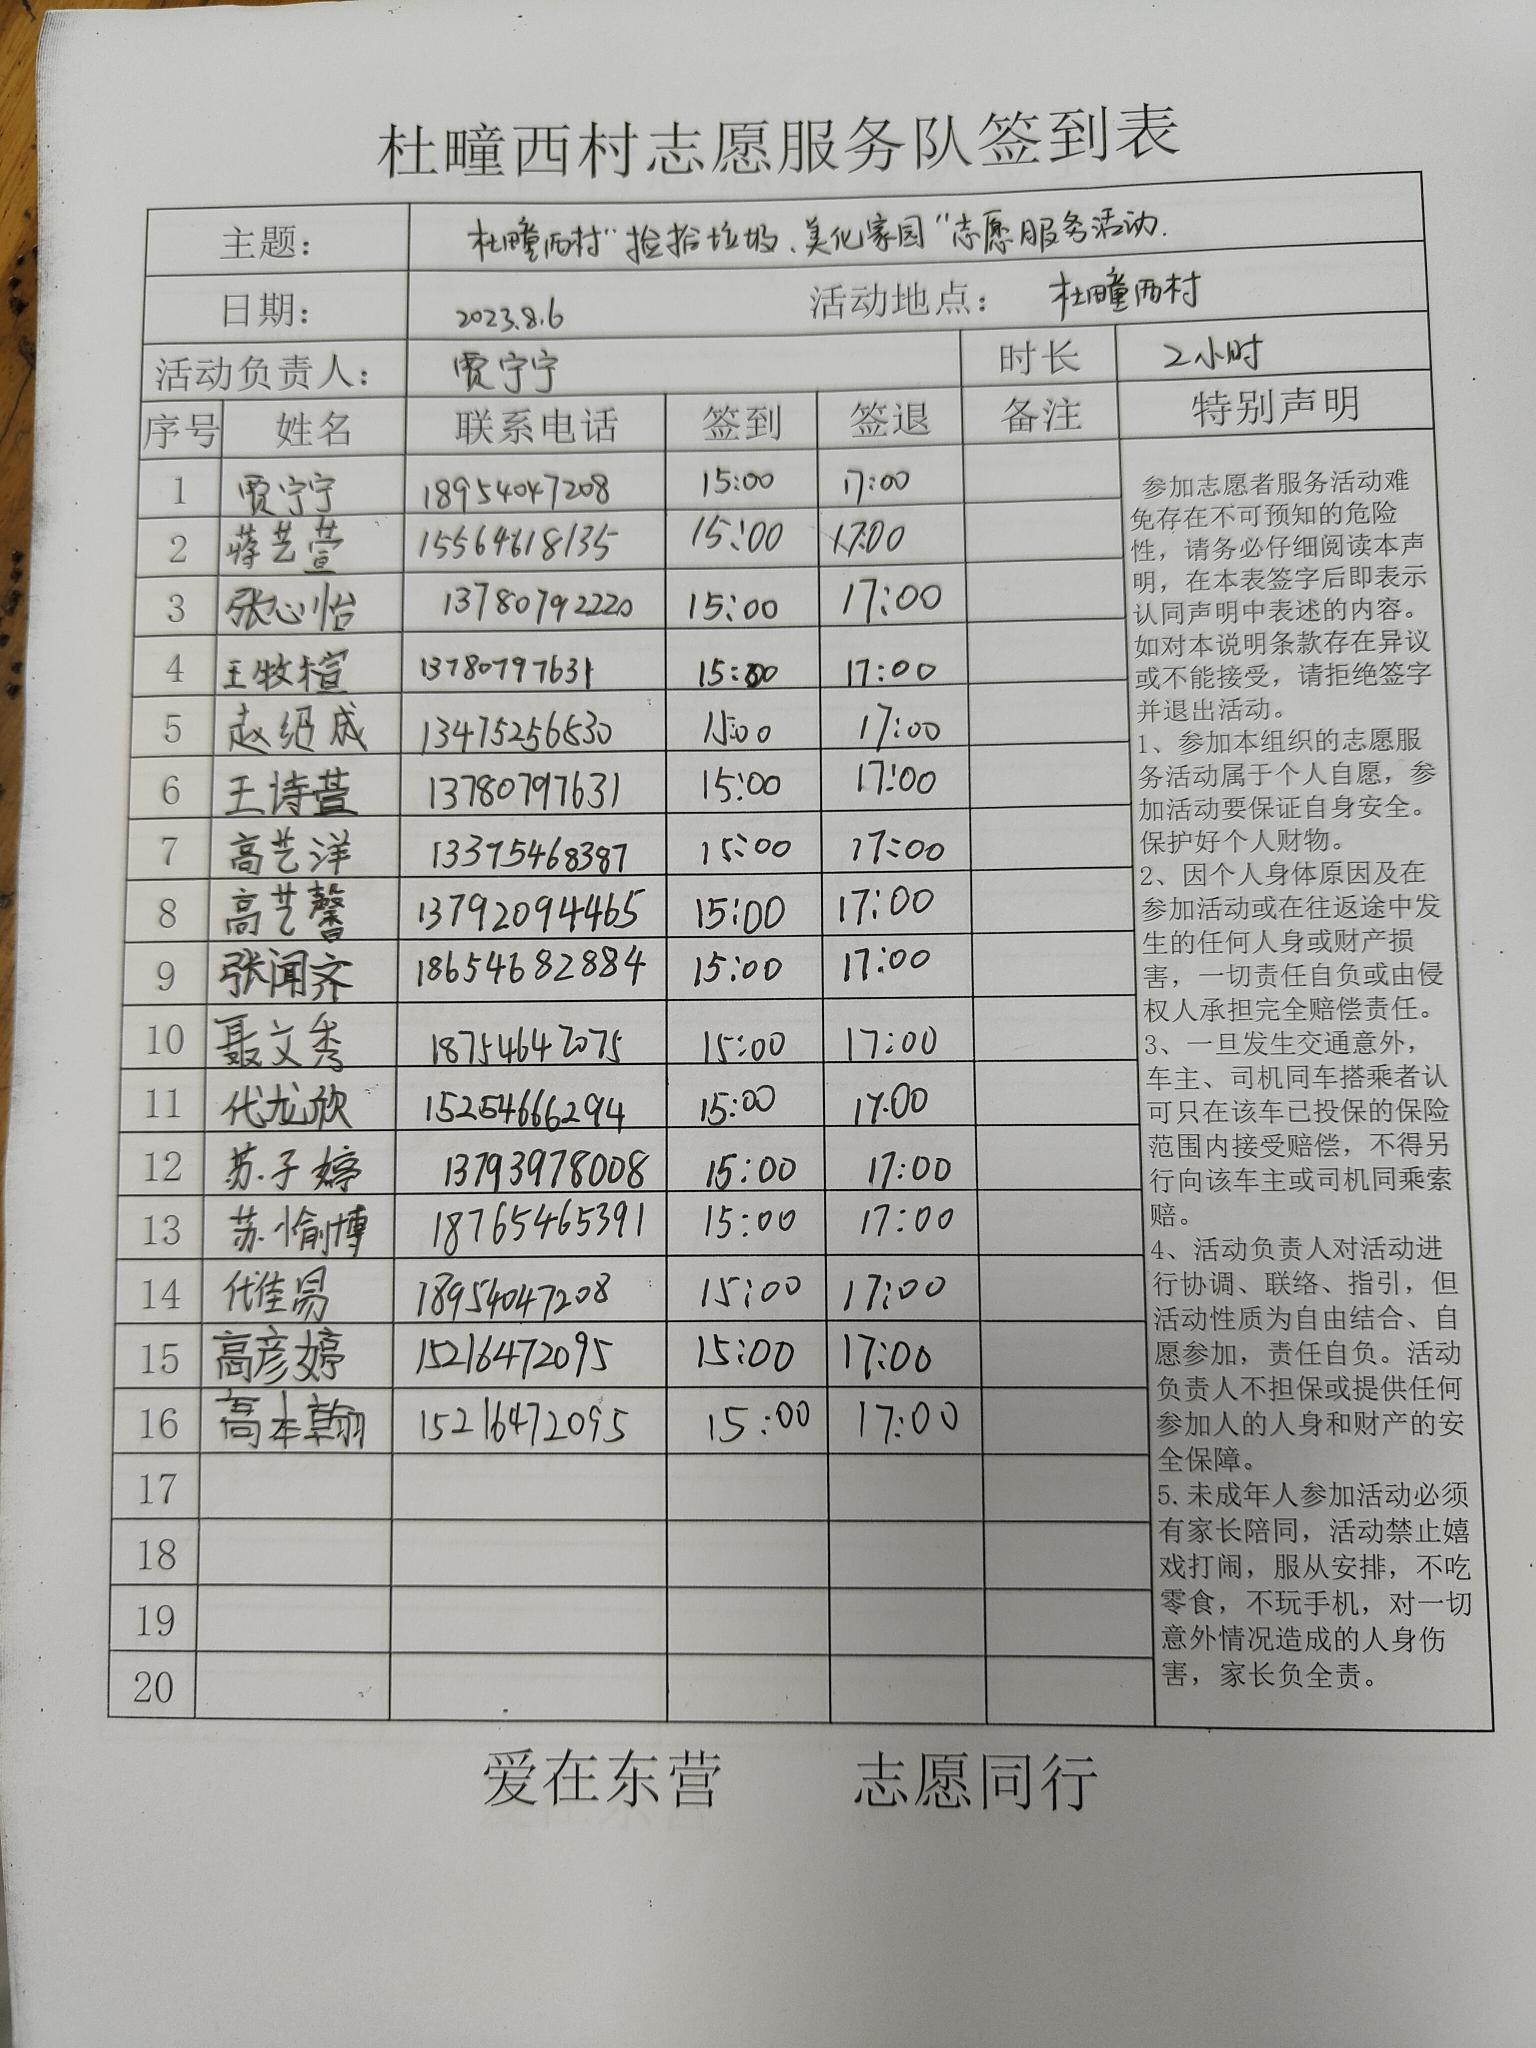 杜疃西村志愿服务队签到表
主题： 杜疃西村“捡拾垃圾、美化家园”志愿服务活动.
日期： 2023.8.6 活动地点： 杜疃西村
活动负责人： 贾宁宁 时长 2小时
序号 姓名 联系电话 签到 签退 备注 特别声明
1 贾宁宁 18954047208 15:00 17:00
2 蒋艺萱 15564618135 15:00 17:00
3 张心怡 13780792220 15:00 17:00
4 王牧楦 13780797631 15:00 17:00
5 赵绍成 13475256830 15:00 17:00
6 王诗萱 13780797631 15:00 17:00
7 高艺洋 13375468387 15:00 17:00
8 高艺馨 13792094465 15:00 17:00
9 张闻齐 18654682884 15:00 17:00
10 聂文秀 18754647075 15:00 17:00
11 代龙欣 15254666294 15:00 17:00
12 苏子婷 13793978008 15:00 17:00
13 苏愉博 18765465391 15:00 17:00
14 代佳易 18954047208 15:00 17:00
15 高彦婷 15216472095 15:00 17:00
16 高本翰 15216472095 15:00 17:00
17
18
19
20
参加志愿者服务活动难
免存在不可预知的危险
性，请务必仔细阅读本声
明，在本表签字后即表示
认同声明中表述的内容。
如对本说明条款存在异议
或不能接受，请拒绝签字
并退出活动。
1、参加本组织的志愿服
务活动属于个人自愿，参
加活动要保证自身安全。
保护好个人财物。
2、因个人身体原因及在
参加活动或在往返途中发
生的任何人身或财产损
害，一切责任自负或由侵
权人承担完全赔偿责任。
3、一旦发生交通意外，
车主、司机同车搭乘者认
可只在该车已投保的保险
范围内接受赔偿，不得另
行向该车主或司机同乘索
赔。
4、活动负责人对活动进
行协调、联络、指引，但
活动性质为自由结合、自
愿参加，责任自负。活动
负责人不担保或提供任何
参加人的人身和财产的安
全保障。
5.未成年人参加活动必须
有家长陪同，活动禁止嬉
戏打闹，服从安排，不吃
零食，不玩手机，对一切
意外情况造成的人身伤
害，家长负全责。
爱在东营 志愿同行